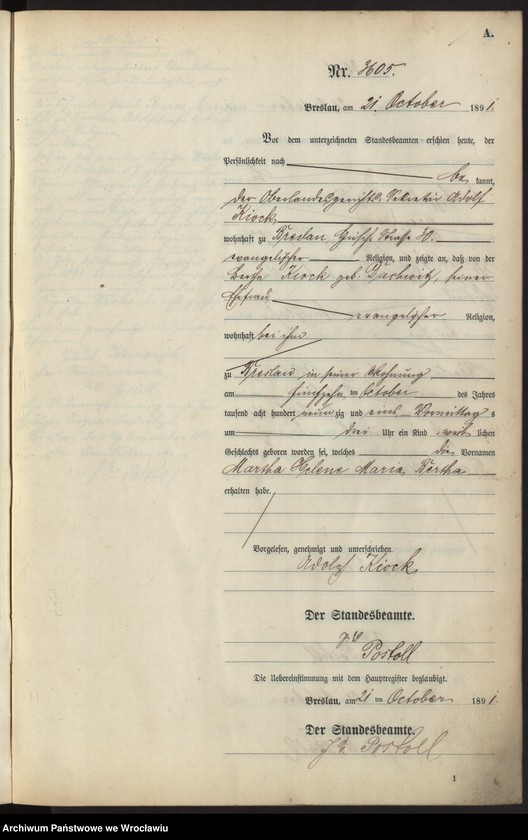 A.
Nr. 3605.
Breslau, am 21. October 1891.
Vor dem unterzeichneten Standesbeamten erschien heute, der
Persönlichkeit nach
be kannt,
der Oberlandesgerichts-Sekretär Adolf
Kiock,
wohnhaft zu Breslau Straße 30.
evangelischer Religion, und zeigte an, daß von der
Bertha Kiock geb: seiner
Ehefrau
evangelischer Religion,
wohnhaft bei ihm
zu Breslau in seiner Wohnung
am fünfzehn ten October des Jahres
tausend acht hundert neun zig und eins Vormittag s
um drei Uhr ein Kind weib lichen
Geschlechts geboren worden sei, welches die Vornamen
Martha Helene Maria Bertha
erhalten habe.
Vorgelesen, genehmigt und unterschrieben.
Adolf Kiock
Der Standesbeamte.
J. V.
Postoll
Die Uebereinstimmung mit dem Hauptregister beglaubigt.
Breslau, am 21 ten October 1891.
Der Standesbeamte.
J. V. Postoll
1
Archiwum Państwowe we Wrocławiu